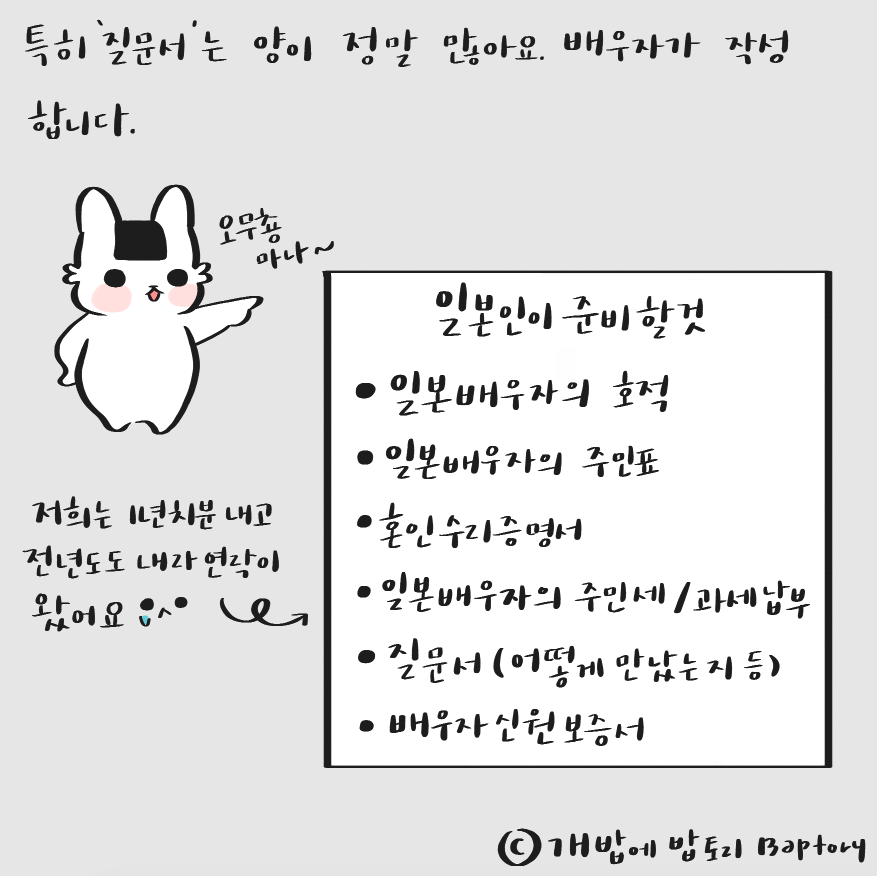 특히 '질문서'는 양이 정말 많아요. 배우자가 작성
합니다.
오무촘
마나~
일본인이 준비할것
• 일본배우자의 호적
• 일본배우자의 주민표
• 혼인수리증명서
• 일본배우자의 주민세/과세납부
• 질문서(어떻게 만났는지 등)
• 배우자신원보증서
저희는 1년치분 내고
전년도도 내라 연락이
왔어요
© 개밥에 밥토리 Baptory